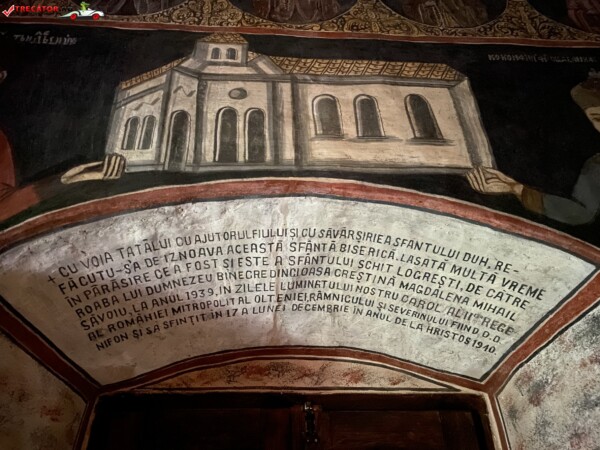 TRECATOR
+ CU VOIA TATĂLUI CU AJUTORUL FIULUI ȘI CU SĂVÂRȘIREA SFANTULUI DUH, RE-
FĂCUTU-SA DE IZNOAVA ACEASTĂ SFÂNTĂ BISERICĂ. LASATĂ MULTĂ VREME
ÎN PĂRĂSIRE CE A FOST ȘI ESTE A SFÂNTULUI SCHIT LOGREȘTI, DE CĂTRE
ROABA LUI DUMNEZEU BINECREDINCIOASA CREȘTINĂ MAGDALENA MIHAIL
SĂVOIU, LA ANUL 1939, IN ZILELE LUMINATULUI NOSTRU CAROL AL II LEA REGE
DE ROMÂNIEI MITROPOLIT AL OLTENIEI, RÂMNICULUI ȘI SEVERINULUI FIIND D.D.
NIFON ȘI SA SFINȚIT IN 17 A LUNEI DECEMBRIE IN ANUL DE LA HRISTOS 1940.